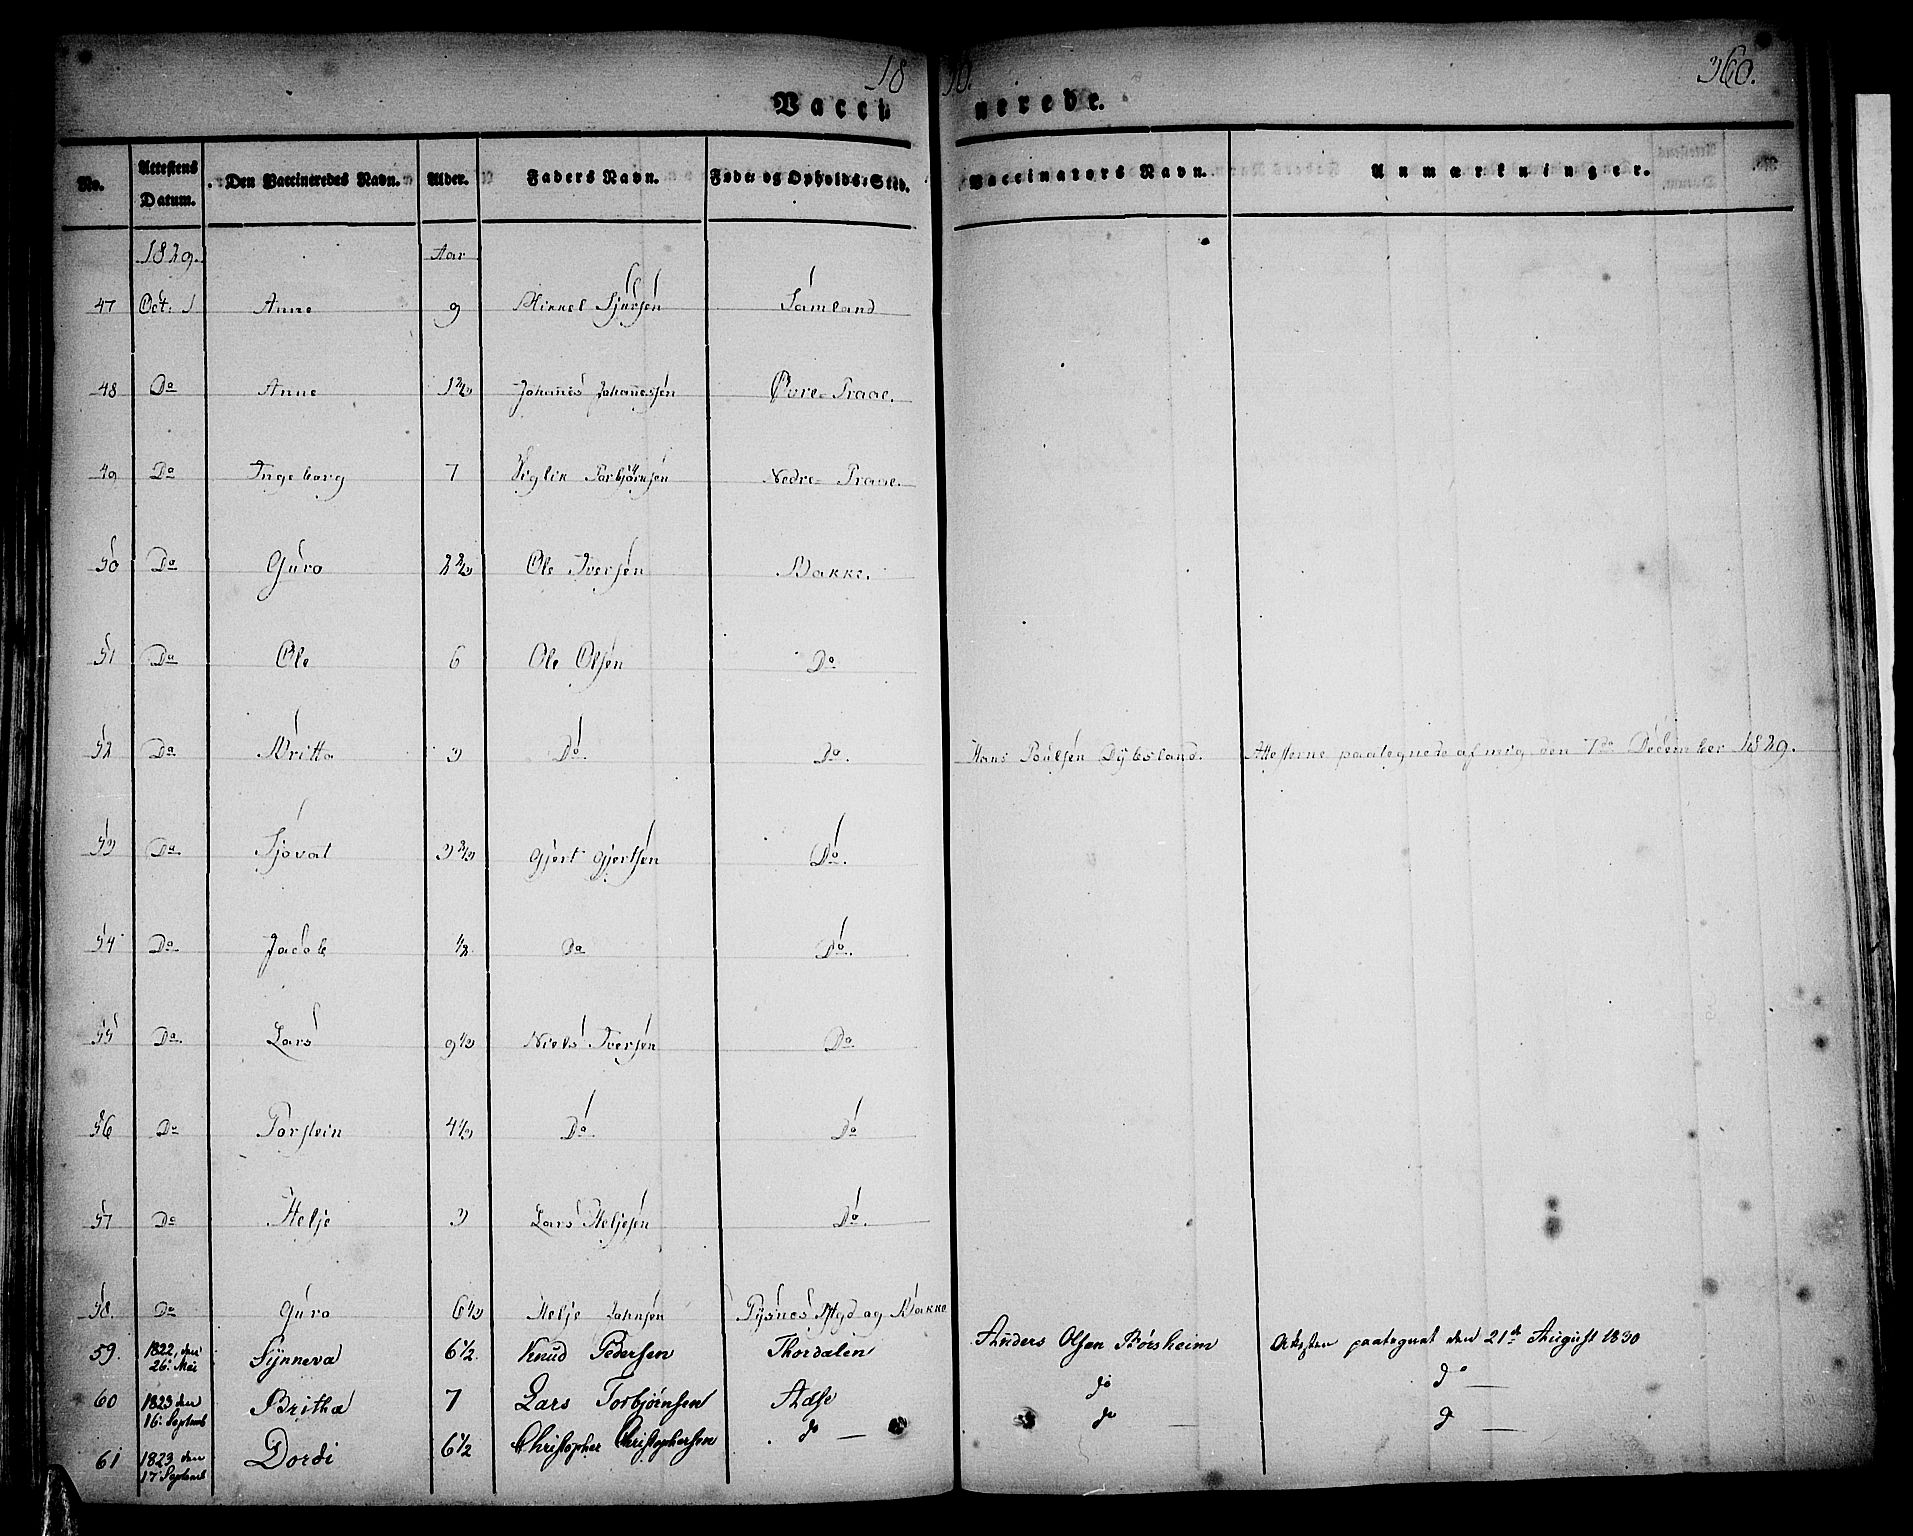 18 30. 360.
Vaccinerede.
No. | Attestens Datum. | Den Vaccineredes Navn. | Alder. | Faders Navn. | Føde og Opholds-Sted. | Vaccinators Navn. | Anmærkninger.
1829. Aar
47 Oct: 1 Anne 9 Mikkel Sjursen Samland
48 Do Anne 1 2/3 Johannes Johannessen Øvre-Traae.
49 Do Ingeborg 7 Viglik Torbjørnsen Nedre-Traae.
50 Do Guro 2 2/3 Ole Iversen Bakke.
51 Do Ole 6 Ole Olsen Do
52 Do Britta 3 Do Do. Hans Poulsen Dybsland. Attesterne paategnede af mig den 7de December 1829.
53 Do. Sjovat 3 2/3 Gjert Gjertsen Do.
54 Do Jacob 1/2 Do Do.
55 Do. Lars 9 1/3 Niels Iversen Do
56 Do Torstein 4 1/3 Do Do
57 Do Helje 3 Lars Heljesen Do.
58. Do Guro 6 1/3 Helje Johnsen Tysnes og Bakke
59. 1822, den 26. Mai Synneva 6 1/2 Knud Pedersen Thordalen Anders Olsen Børsheim Attesten paategnet den 21de August 1830
60 1823 den 16. Septemb Britha 7 Lars Torbjørnsen Aase do do
61 1823 den 17 Septemb Dordi 6 1/2 Christopher Christophersen do do do